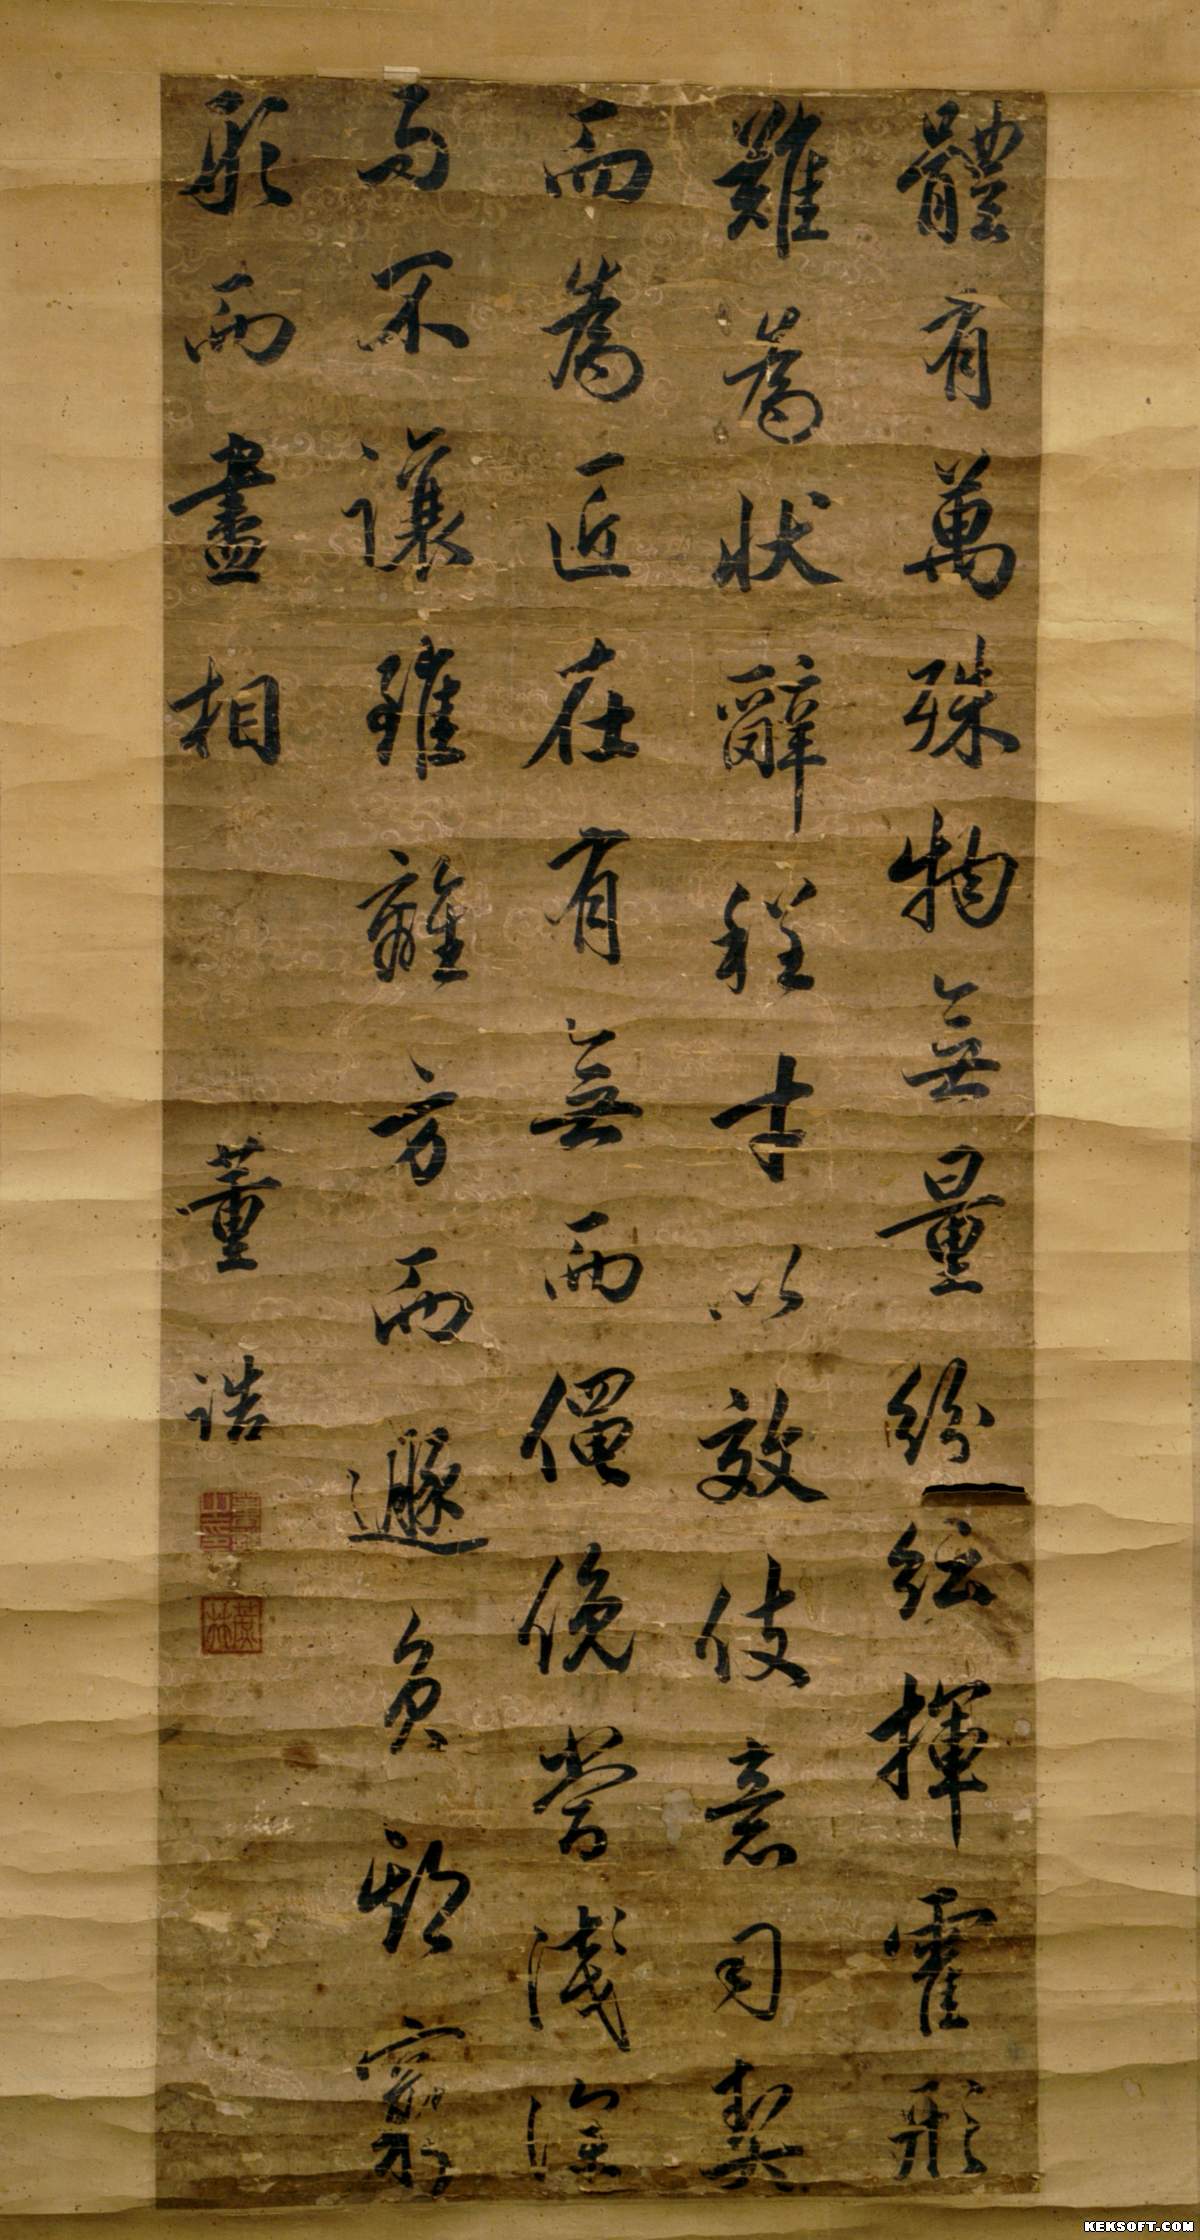 體有萬殊物無量紛紜揮霍形
難為狀辭程才以效伎意司契
而為匠在有無而僶俛當淺深
而不讓雖離方而遯員期窮
形而盡相
董誥
蔗林
KEKSOFT.COM